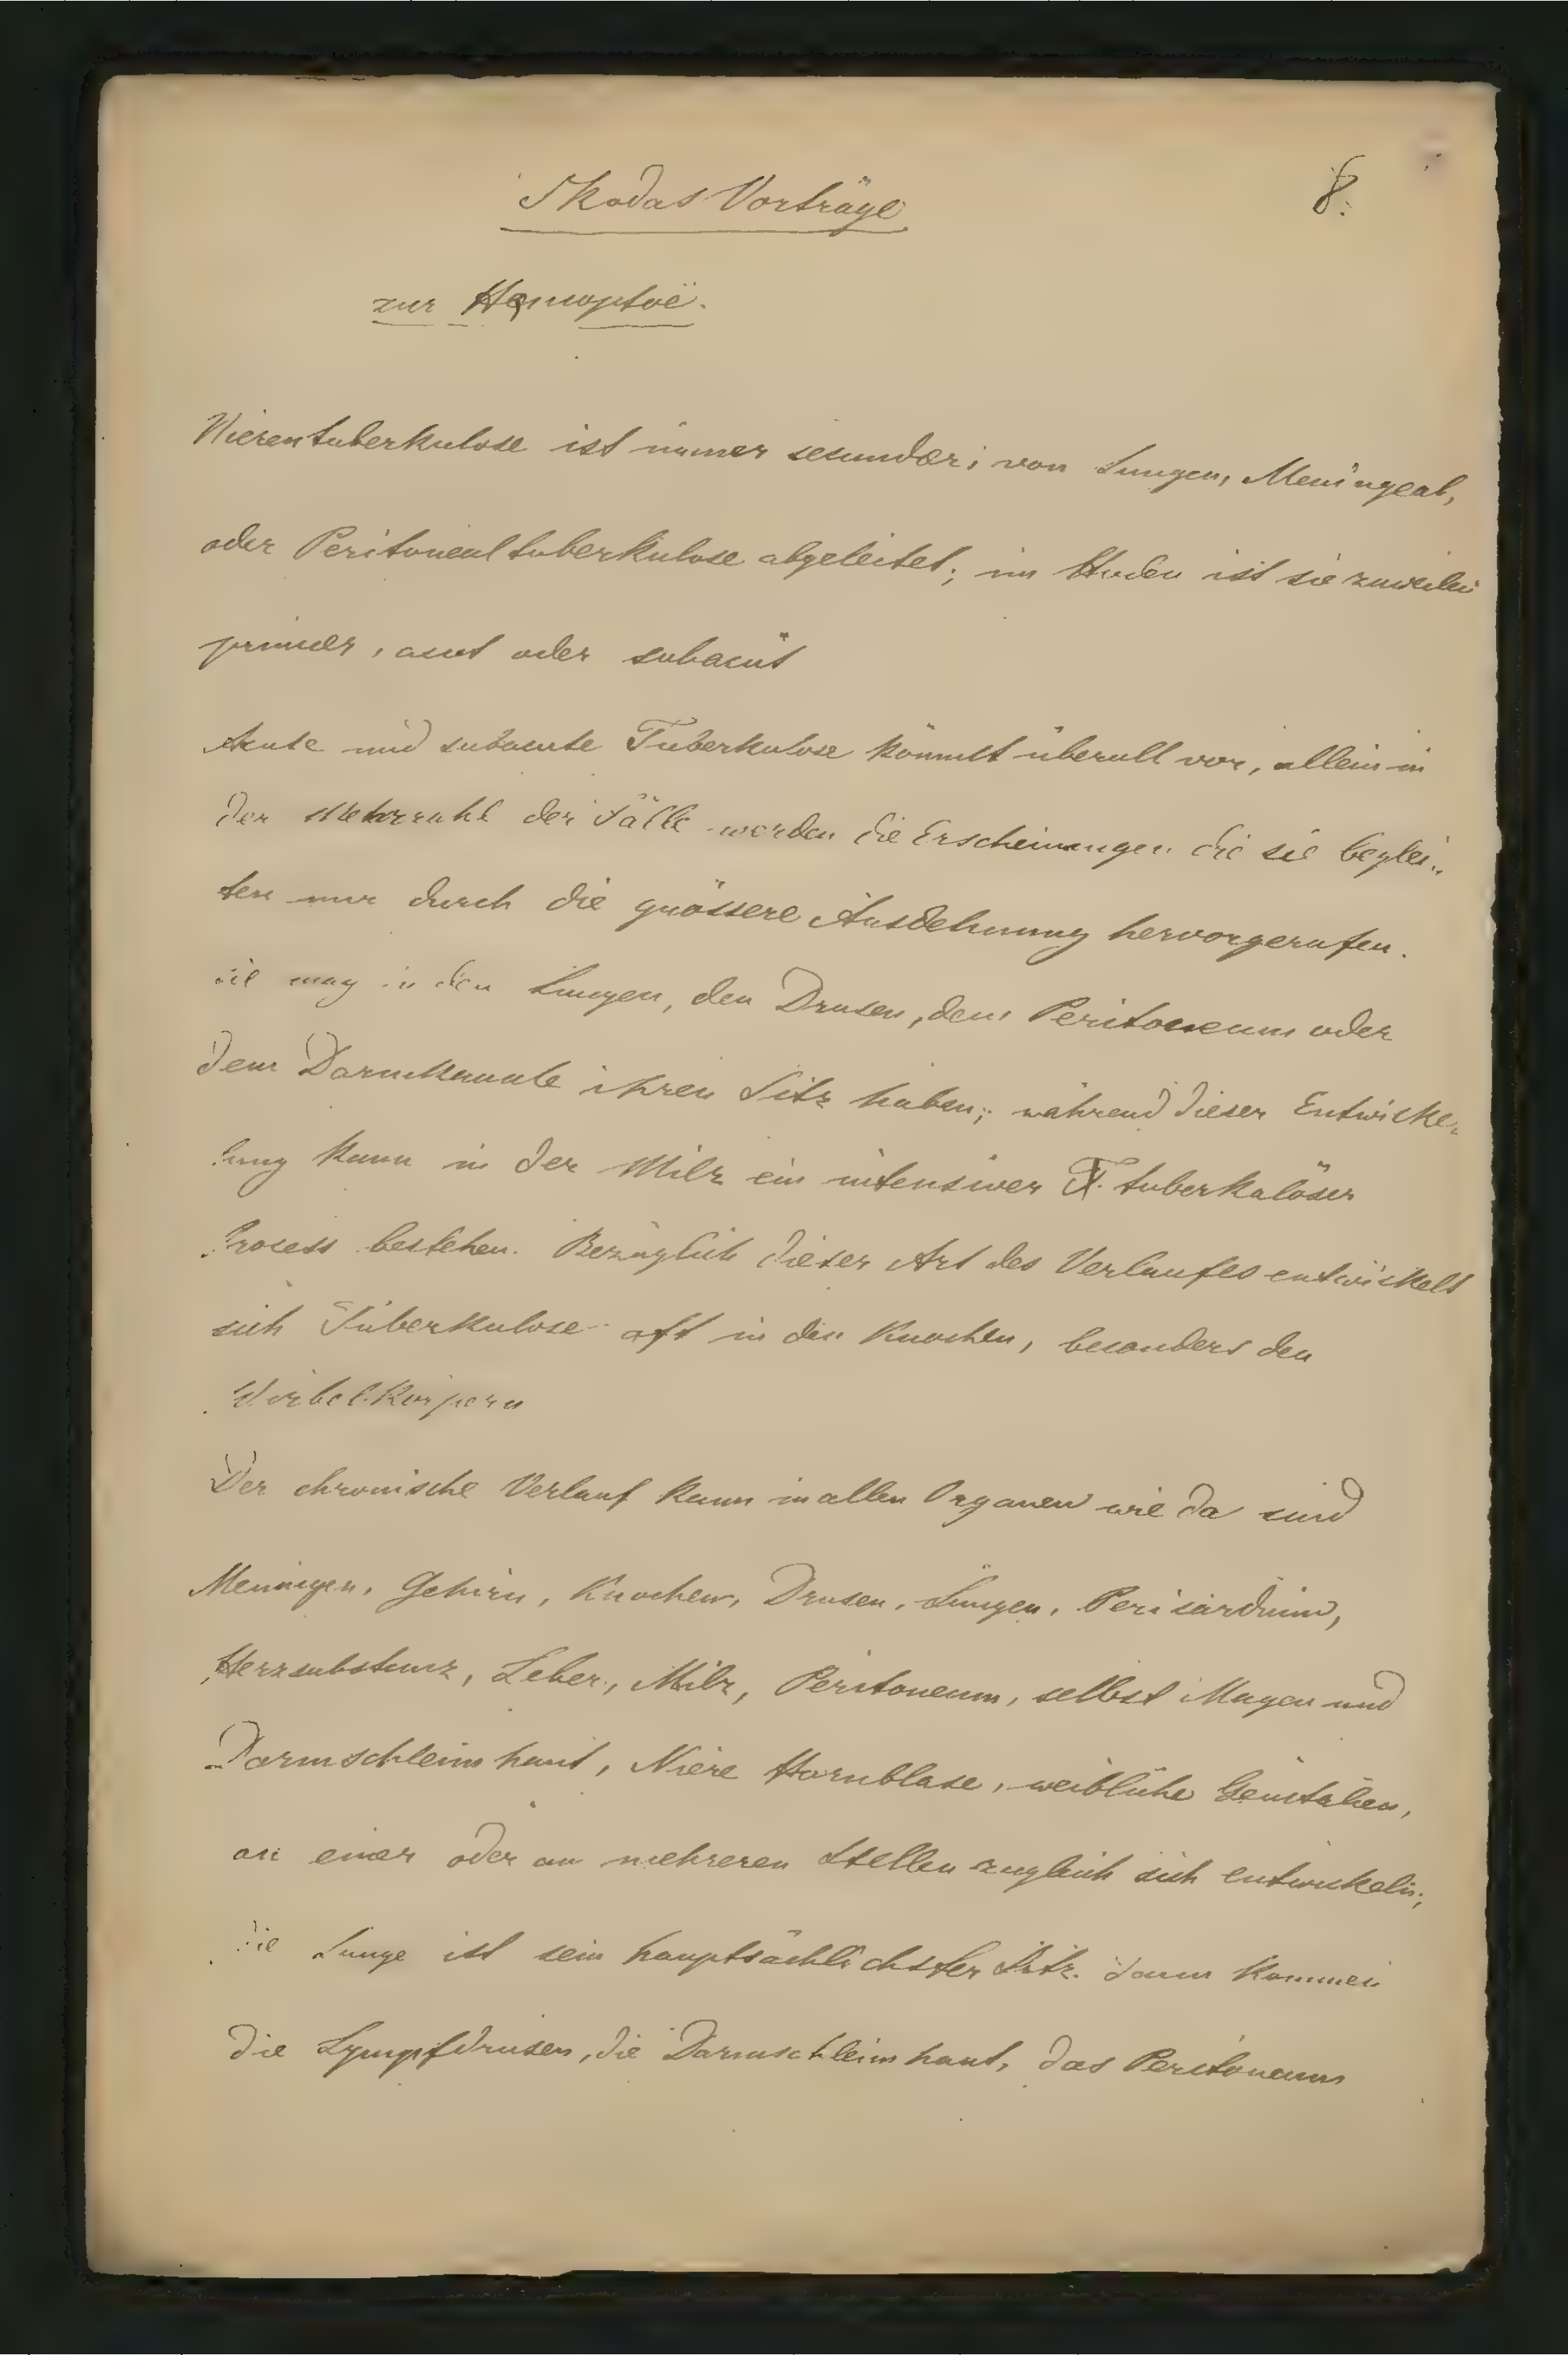 Skodas Vorträge
8.
zur Hæmoptoë.
Nierentuberkulose ist immer secundær; von Lungen, Meningeal,
oder Peritonealtuberkulose abgeleitet; im Hoden ist sie zuweilen
primær, acut oder subacut
Akute und subacute Tuberkulose kömmt überall vor, allein in
der Mehrzahl der Fälle werden die Erscheinungen die sie beglei-
ten nur durch die grössere Ausdehnung hervorgerufen.
Sie mag in den Lungen, den Drusen, dem Peritoneum oder
dem Darmkanale ihren Sitz haben; während dieser Entwicke-
lung kann in der Milz ein intensiver T. tuberkulöser
Process bestehen. Bezüglich dieser Art des Verlaufes entwickelt
sich Tuberkulose oft in den Knochen, besonders den
Wirbelkörpern
Der chronische Verlauf kann in allen Organen wie da sind
Meningen, Gehirn, Knochen, Drusen, Lungen, Pericardium,
Herzsubstanz, Leber, Milz, Peritoneum, selbst Magen und
Darmschleimhaut, Niere Harnblase, weibliche Genitalien,
an einer oder an mehreren Stellen zugleich sich entwickeln;
die Lunge ist sein hauptsächlichster Sitz. dann kommen
die Lympfdrusen, die Darmschleimhaut, das Peritoneum